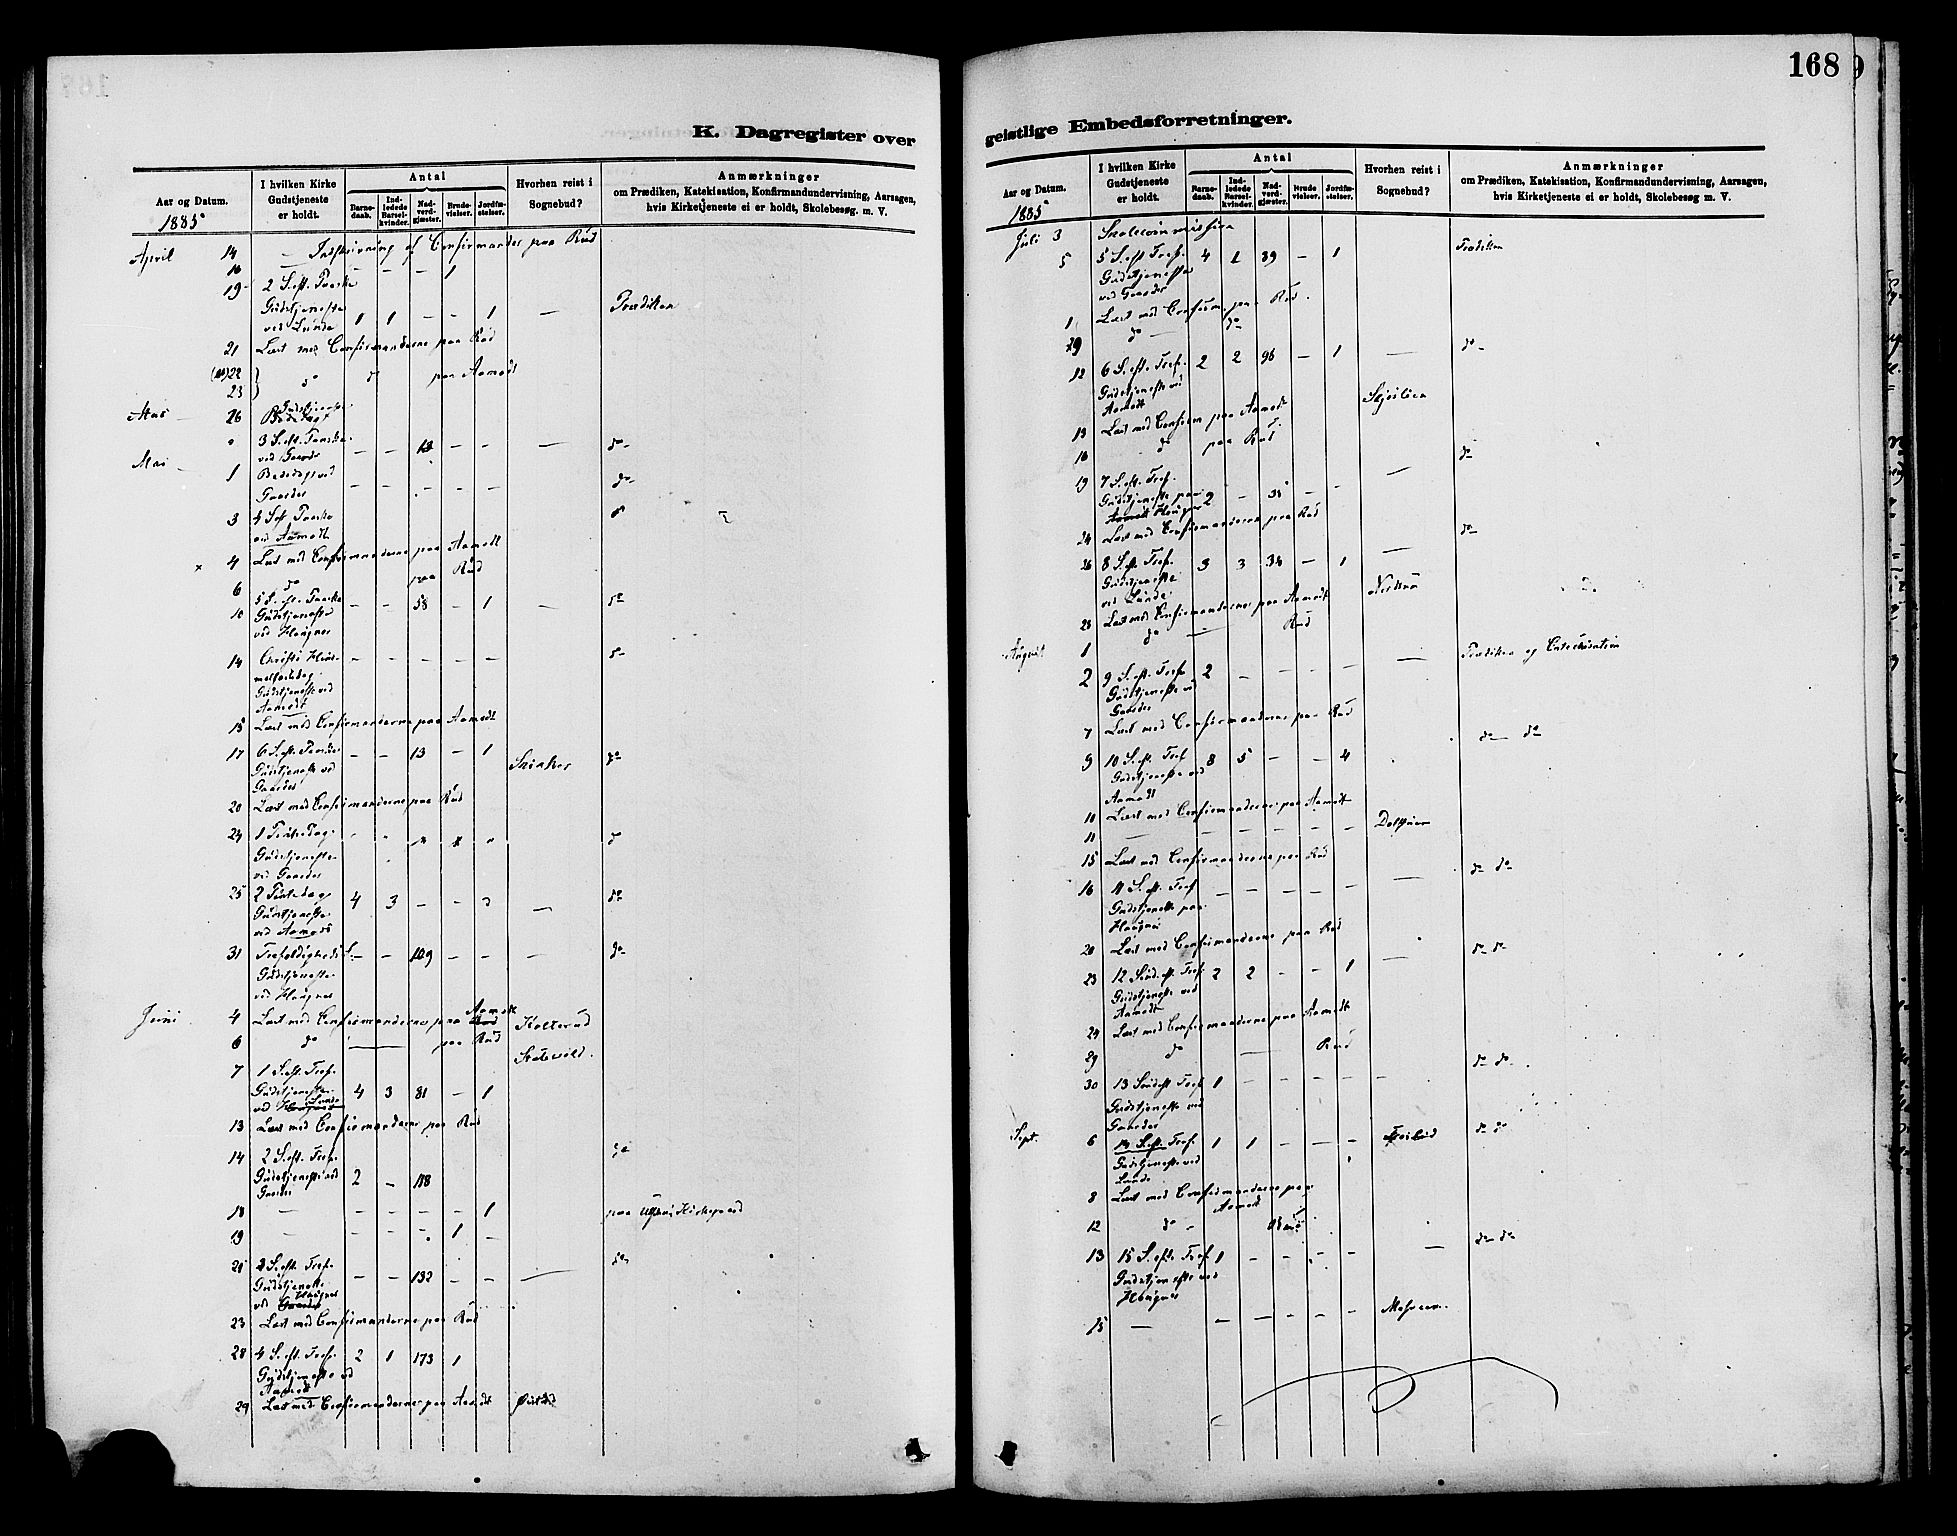 168
K. Dagregister over
Aar og Datum.
I hvilken Kirke Gudstjeneste er holdt.
Antal
Barne-daab.
Ind-ledede Barsel-kvinder.
Nad-verd-gjæster.
Brude-vielser.
Jordfæ-stelser.
Hvorhen reist i Sognebud?
Anmærkninger
om Prædiken, Katekisation, Konfirmandundervisning, Aarsagen,
hvis Kirketjeneste ei er holdt, Skolebesøg m. V.
1885
April 14 — Indskrivning af Confirmander paa Rud
16 — — — — 1
19 2 S. eft. Paaske
Gudstjeneste
ved Lunde 1 1 — — 1 — Prædiken
21 Læst med Confirmanderne paa Rud
22
23 do do paa Aamodt
26 Gudstjeneste
3 S. eft. Paaske
ved Gaarder — — — — — do
Mai 1 Bededag ved
Gaarder — — — — — do
3 4 S. eft. Paaske
ved Aamodt
4 Læst med Confirmanderne paa Aamodt
6 do paa Rud
10 5 S. eft. Paaske
Gudstjeneste
ved Haugnes — — 58 — 1 — do
14 Christi Him-
melfartsdag
Gudstjeneste ved
Aamodt — — — — — do
15 Læst med Confirmanderne paa Aamodt
17 6 S. eft. Paaske
Gudstjeneste ved
Gaarder — — 13 — 1 do
20 Læst med Confirmanderne paa Rud
24 1 Pintsedag
Gudstjeneste
ved Gaarder do
25 2 Pintsedag
Gudstjeneste
ved Aamodt 4 3 — — — do
31 Trefoldigheds S.
Gudstjeneste
ved Haugnes — — 109 — — — do
Juni 4 Læst med Confirmanderne paa Aamodt Kolterud
6 do — paa Rud
7 1 S. eft. Tref.
Gudstjeneste
ved Lunde 4 3 81 — 1
13 Læst med Confirmanderne paa Rud
14 2 S. eft. Tref.
Gudstjeneste ved
Gaarder 2 — 118 do
18 — — — — — 1 paa Kirkegaard
19 — — — — 1 —
21 3 S. eft. Tref.
Gudstjeneste
ved Haugnes — — 132 — — — do
23 Læst med Confirmanderne paa Rud
28 4 S. eft. Tref. 2 1 173 1
Gudstjeneste ved
Aamodt
29 Læst med Confirmanderne paa Aamodt
geistlige Embedsforretninger.
Aar og Datum.
I hvilken Kirke Gudstjeneste er holdt.
Antal
Barne-daab.
Ind-ledede Barsel-kvinder.
Nad-verd-gjæster.
Brude vielser.
Jordfæ-stelser.
Hvorhen reist i Sognebud?
Anmærkninger
om Prædiken, Katekisation, Konfirmandundervisning, Aarsagen,
hvis Kirketjeneste ei er holdt, Skolebesøg m. V.
1885
Juli 3 Skolecommission
5 5 S. eft. Tref. 4 1 89 — 1 Prædiken
Gudstjeneste
ved Gaarder
Læst med Confirm. paa Rud.
do — do
12 6 S. eft. Tref. 2 2 96 — 1 — do
Gudstjeneste ved
Aamodt
13 Læst med Confirm paa Aamodt
16 do paa Rud
19 7 S. eft. Tref.
Gudstjeneste paa
Haugnes 2 — — — — do
24 Læst med Confirmanderne paa Rud
26 8 S. eft. Tref. 3 3 34 — 1 — do
Gudstjeneste
ved Lunde
28 Læst med Confirmanderne paa Aamodt
August 1 do — Rud
2 9 S. eft. Tref. 2 — — — — — Prædiken og Catechisation
Gudstjeneste ved
Gaarder
7 Læst med Confirmanderne paa Rud
9 10 S. eft. Tref. 8 5 — — 4 do do
Gudstjeneste ved
Aamodt
10 Læst med Confirmanderne paa Aamodt
11 — — — — — —
15 Læst med Confirmanderne paa Rud
16 11 S. eft. Tref. — — — — — — do do
Gudstjeneste paa
Haugnes
20 Læst med Confirmanderne paa Rud
23 12 Sønd. eft. Tref. 2 2 — — 1 — do do
Gudstjeneste ved
Aamodt
24 Læst med Confirmanderne paa Aamodt
29 do — Rud
30 13 Sønd eft Tref. 1 — — — — — do do
Gudstjeneste ved
Gaarder
Sept. 6 14 S. eft. Tref. 1 1 — — — do do
Gudstjeneste ved
Lunde
8 Læst med Confirmanderne paa
Aamodt
12 do — Rud
13 15 S. eft. Tref. 1 — — — — — do do
Gudstjeneste ved
Haugnes
15 — — — — — —